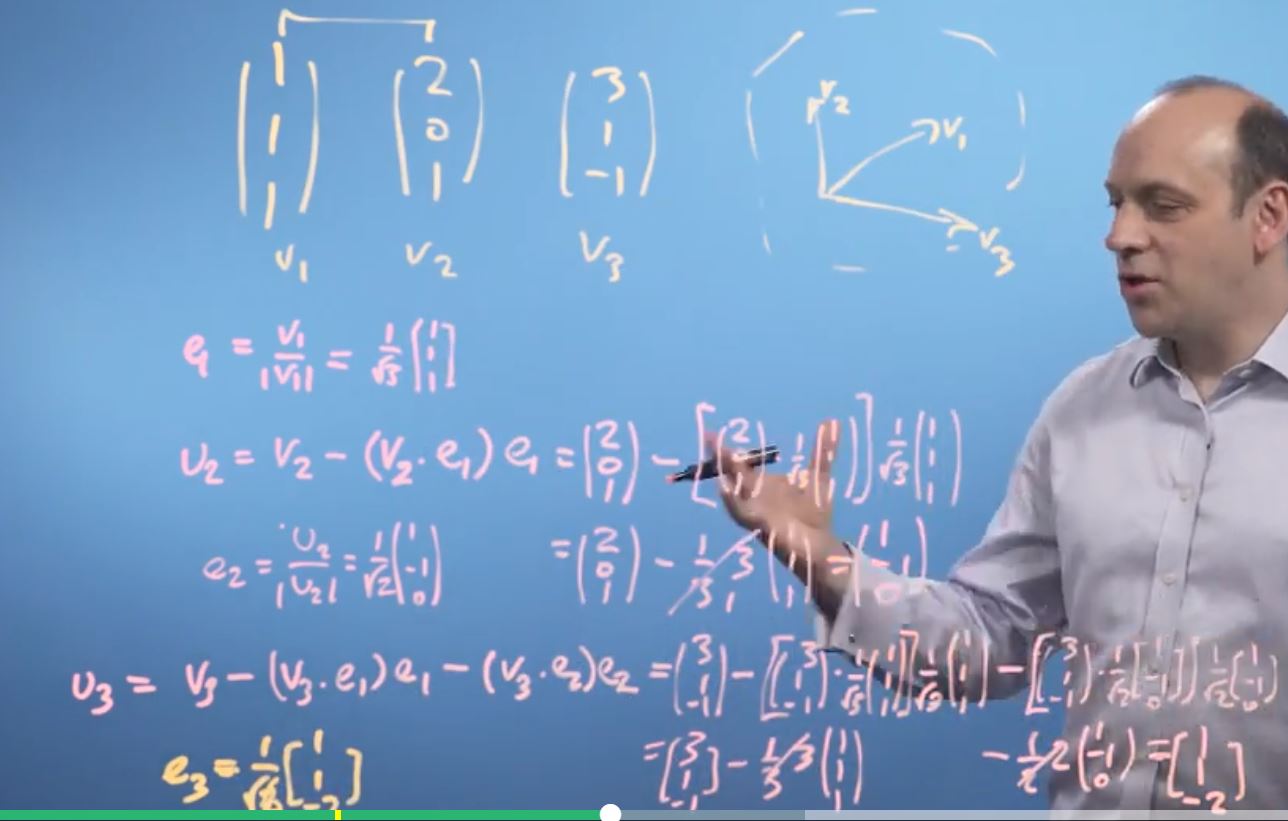 (1 1 1) (2 0 1) (3 1 -1)
v₂
v₁
v₃
v₁ v₂ v₃
e₁ = v₁/|v₁| = 1/√3 [1 1 1]
u₂ = v₂ - (v₂·e₁) e₁ = (2 0 1) - [(2 0 1)·1/√3 (1 1 1)] 1/√3 (1 1 1)
e₂ = u₂/|u₂| = 1/√2 (1 -1 0) = (2 0 1) - 1/3 3 (1 1 1) = (1 -1 0)
u₃ = v₃ - (v₃·e₁)e₁ - (v₃·e₂)e₂ = (3 1 -1) - [(3 1 -1)·1/√3 (1 1 1)] 1/√3 (1 1 1) - [(3 1 -1)·1/√2 (1 -1 0)] 1/√2 (1 -1 0)
e₃ = 1/√6 [1 1 -2] = [3 1 -1] - 1/3 3 (1 1 1) - 1/2 2 (1 -1 0) = [1 1 -2]